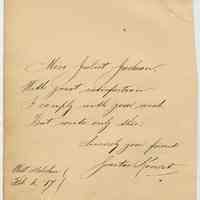 Miss Juliet Jackson,
With great satisfaction
I comply with your wish
But write only this:
Sincerely your friend
Gustav
Feb. 2, 97